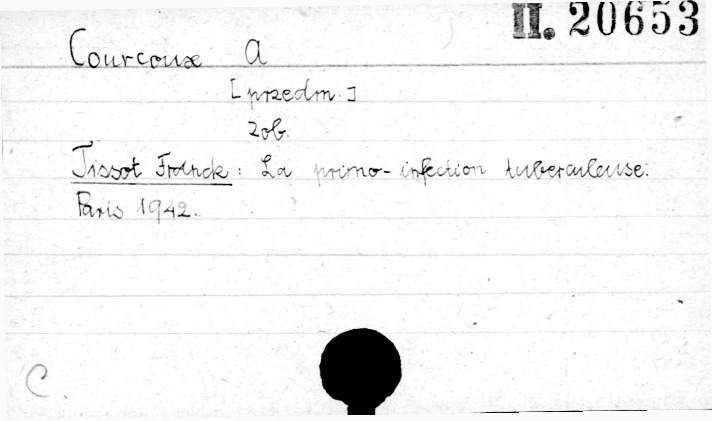 II. 20653
Courcoux A
[przedm.]
zob.
Tissot Franck: La primo-infection tuberculeuse.
Paris 1942.
C.